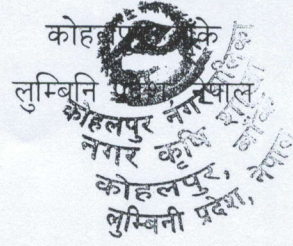 कोहलपुर बाँके
लुम्बिनि प्रदेश नेपाल
कोहलपुर नगरपालिका
नगर कृषि शाखा
कोहलपुर, बाँके
लुम्बिनी प्रदेश, नेपाल